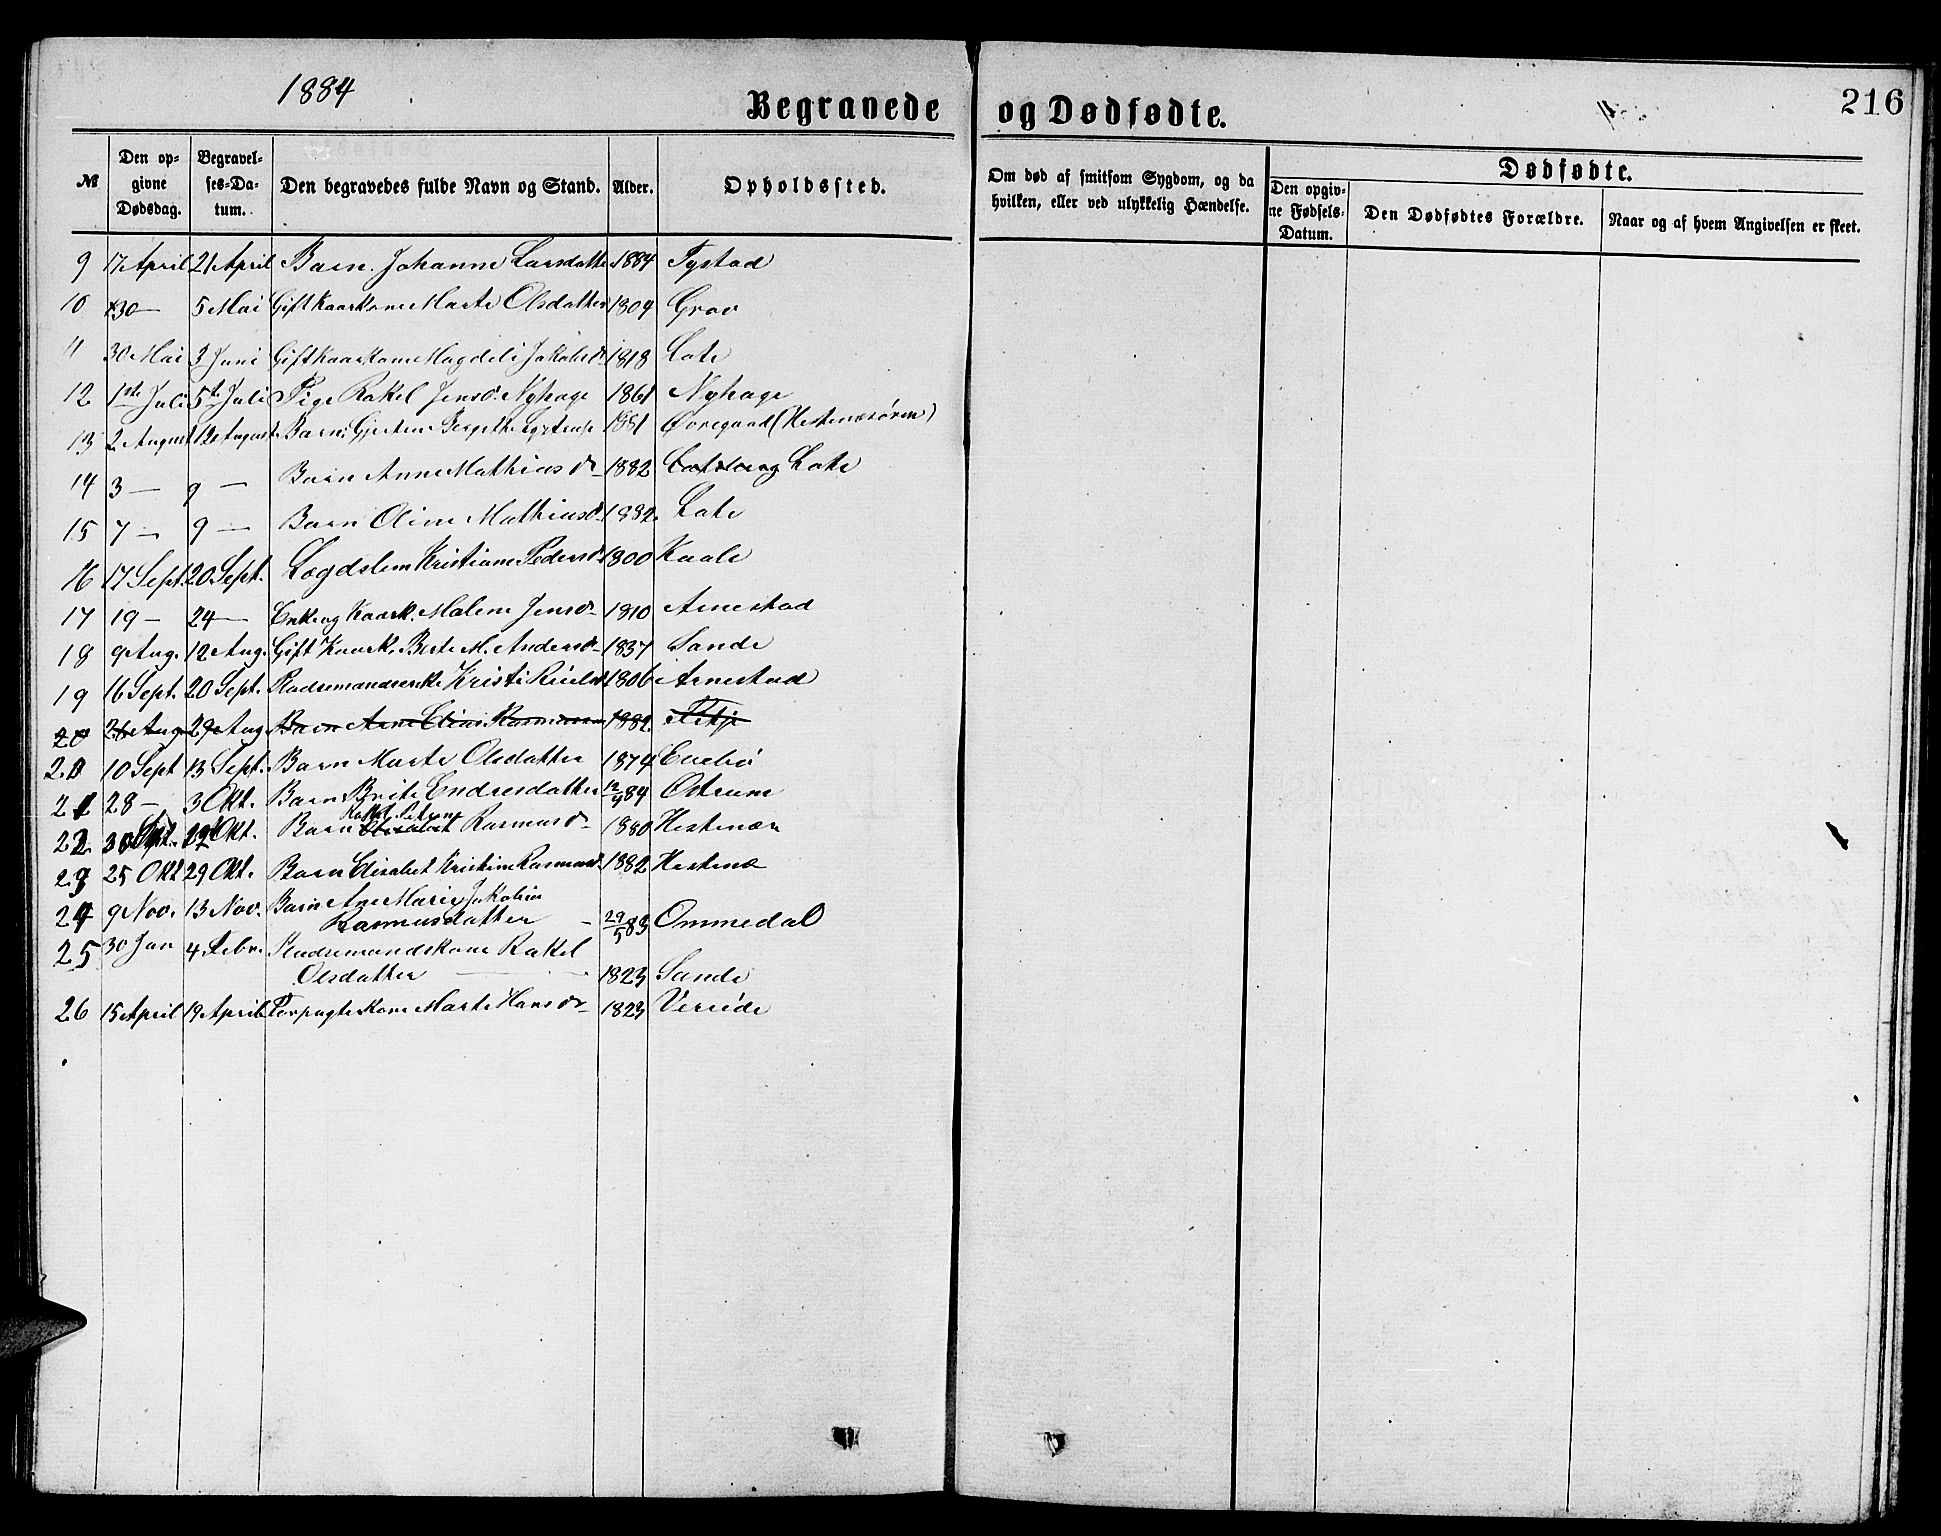 1884
Begravede og Dødfødte.
216
№ Den opgivne Dødsdag. Begravelses-Datum. Den begravedes fulde Navn og Stand. Alder. Opholdssted. Om død af smitsom Sygdom, og da hvilken, eller ved ulykkelig Hændelse. Dødfødte. Den opgivne Fødsels-Datum. Den Dødfødtes Forældre. Naar og af hvem Angivelsen er skeet.
9 17 April 21 April Barn Johanne Larsdatter 1884 Tystad
10 30 — 5 Mai Gift Kaarkone Marte Olsdatter 1809 Grov
11 30 Mai 3 Juni Gift Kaarkone Magdeli Jakobsd. 1818 Lote
12 1ste Juli 5te Juli Pige Rakel Jensd. Nyhage 1861 Nyhage
13 2 August 12 August Barn 1881 Øvregaard (Hestenesøren)
14 3 — 9 — Barn Anne Mathiasdr 1882 Lote
15 7 — 9 — Barn Oline Mathiasd. 1882. Lote
16 17 Sept. 20 Sept. Lægdslem Kristiane Pedersd. 1800 Kaale
17 19 — 24 — Enke og Kaark. Malene Jensdr 1810 Arnestad
18 9 Aug. 12 Aug. Gift Kaark. Berte M. Andersd. 1837 Sande
19 16 Sept. 20 Sept. Pladsemandsenke Kristi 1806 Arnestad
20 26 Aug 29 Aug. Barn Ane Rasmussen 1882.
20 10 Sept 13 Sept. Barn Marte Olsdatter 1874 Evebø
21 28 — 3 Okt. Barn Brite Endresdatter 84 Ostrum
22 30 Okt. Barn Rakel Petrine Elisabet Rasmusdr 1880 Hestenæs
23 25 Okt 29 Okt. Barn Elisabet Kristine Rasmusd. 1882 Hestenæ
24 9 Nov. 13 Nov. Barn Ane Marie Jakobine
Rasmusdatter — 29/5 83 Ommedal
25 30 Jan 4 Febr. Pladsemandskone Rakel
Olsdatter — 1823 Sande
26 15 April 19 April Forpagterkone Marte Hansdr 1823 Vereide